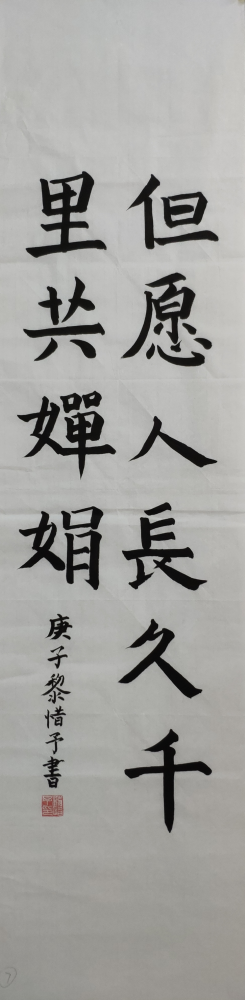 但愿人長久千
里共嬋娟
庚子黎惜予書